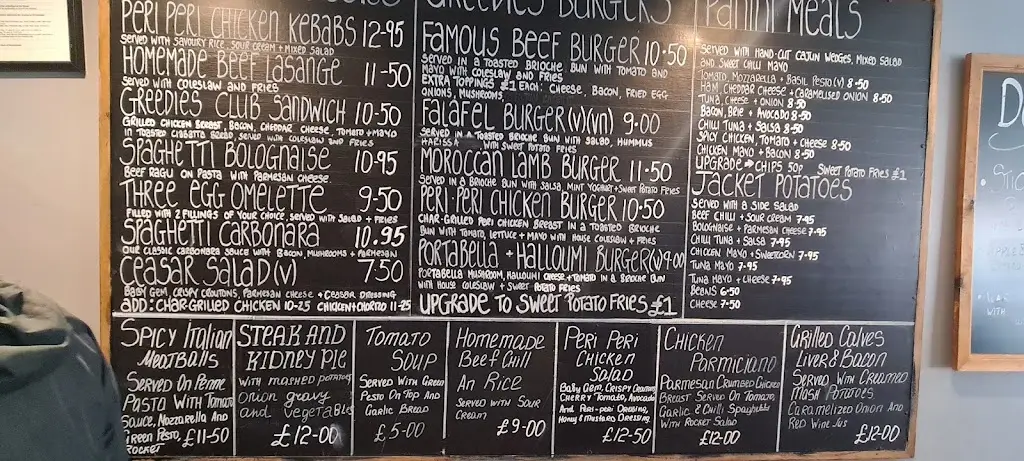 PERI PERI CHICKEN KEBABS 12-95
SERVED WITH SAVOURY RICE, SOUR CREAM + MIXED SALAD
HOMEMADE BEEF LASANGE 11-50
SERVED WITH COLESLAW AND FRIES
GREEDIES CLUB SANDWICH 10-50
GRILLED CHICKEN BREAST, BACON, CHEDDAR CHEESE, TOMATO + MAYO
IN TOASTED CIABATTA BREAD, SERVED WITH COLESLAW AND FRIES
SPAGHETTI BOLOGNAISE 10-95
BEEF RAGU ON PASTA WITH PARMESAN CHEESE
THREE EGG OMELETTE 9-50
FILLED WITH 2 FILLINGS OF YOUR CHOICE, SERVED WITH SALAD + FRIES
SPAGHETTI CARBONARA 10.95
OUR CLASSIC CARBONARA SAUCE WITH BACON, MUSHROOMS + PARMESAN
CEASAR SALAD (V) 7.50
BABY GEM, CRISPY CROUTONS, PARMESAN CHEESE + CEASAR DRESSING
ADD: CHAR-GRILLED CHICKEN 10-25 CHICKEN + CHORIZO 11-25
GREEDIES BURGERS
FAMOUS BEEF BURGER 10-50
SERVED IN A TOASTED BRIOCHE BUN WITH TOMATO AND
MAYO WITH COLESLAW AND FRIES
EXTRA TOPPINGS £1 EACH: CHEESE, BACON, FRIED EGG
ONIONS, MUSHROOMS
FALAFEL BURGER (V)(VN) 9-00
SERVED IN A TOASTED BRIOCHE BUN WITH SALAD, HUMMUS
HARISSA WITH SWEET POTATO FRIES
MOROCCAN LAMB BURGER 11-50
SERVED IN A BRIOCHE BUN WITH SALSA, MINT YOGHURT + SWEET POTATO FRIES
PERI-PERI CHICKEN BURGER 10-50
CHAR-GRILLED PERI CHICKEN BREAST IN A TOASTED BRIOCHE
BUN WITH TOMATO, LETTUCE + MAYO WITH HOUSE COLESLAW + FRIES
PORTABELLA + HALLOUMI BURGER (V) 9.00
PORTABELLA MUSHROOM, HALLOUMI CHEESE + TOMATO IN A BRIOCHE BUN
WITH HOUSE COLESLAW + SWEET POTATO FRIES
UPGRADE TO SWEET POTATO FRIES £1
PANINI MEALS
SERVED WITH HAND-CUT CAJUN WEDGES, MIXED SALAD
AND SWEET CHILLI MAYO
TOMATO, MOZZARELLA + BASIL PESTO (V) 8-50
HAM, CHEDDAR CHEESE + CARAMELISED ONION 8-50
TUNA, CHEESE + ONION 8-50
BACON, BRIE + AVOCADO 8-50
CHILLI TUNA + SALSA 8-50
SPICY CHICKEN, TOMATO + CHEESE 8-50
CHICKEN MAYO + BACON 8-50
UPGRADE → CHIPS 50P SWEET POTATO FRIES £1
JACKET POTATOES
SERVED WITH A SIDE SALAD
BEEF CHILLI + SOUR CREAM 7-95
BOLOGNAISE + PARMESAN CHEESE 7-95
CHILLI TUNA + SALSA 7-95
CHICKEN MAYO + SWEETCORN 7-95
TUNA MAYO 7-95
TUNA MAYO + CHEESE 7-95
BEANS 6-50
CHEESE 7-50
SPICY ITALIAN
MEATBALLS
SERVED ON PENNE
PASTA WITH TOMATO
SAUCE, NOZZARELLA AND
GREEN PESTO,
ROCKET £11-50
STEAK AND
KIDNEY PIE
WITH MASHED POTATOES
ONION GRAVY
AND VEGETABLE
£12-00
TOMATO
SOUP
SERVED WITH GREEN
PESTO ON TOP AND
GARLIC BREAD
£5-00
HOMEMADE
BEEF CHILL
AN RICE
SERVED WITH SOUR
CREAM
£9-00
PERI PERI
CHICKEN
SALAD
BABY GEM, CRISPY
CHERRY TOMATO, AVOCADO
AND PERI-PERI DRESSING,
HONEY & MUSTARD DRESSING
£12-50
CHICKEN
PARMICIANO
PARMESAN CRUMBED CHICKEN
BREAST SERVED ON TOMATO,
GARLIC & CHILLI SPAGHETTI
WITH ROCKET SALAD
£12-00
GRILLED CALVES
LIVER & BACON
SERVED WITH CREAMED
MASH POTATOES
CARAMELIZED ONION AND
RED WINE JUS
£12-00